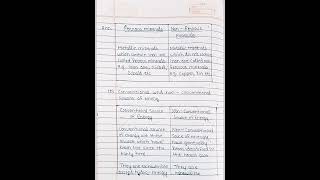 Ans:
Ferrous minerals
Non-Ferrous minerals
Metallic minerals
which contain iron are
called ferrous minerals
e.g. Iron ore, nickel,
Cobalt etc
Metallic minerals
which do not contain
iron are called non
ferrous minerals
e.g. Copper, Tin etc
(ii) Conventional and non-conventional
Source of Energy
Conventional Source
of Energy
Non-Conventional
Source of Energy
Conventional source
of energy are those
which have
been
Non-Conventional
Source of energy
have generally
been identified in
the recent
They are
except
They are